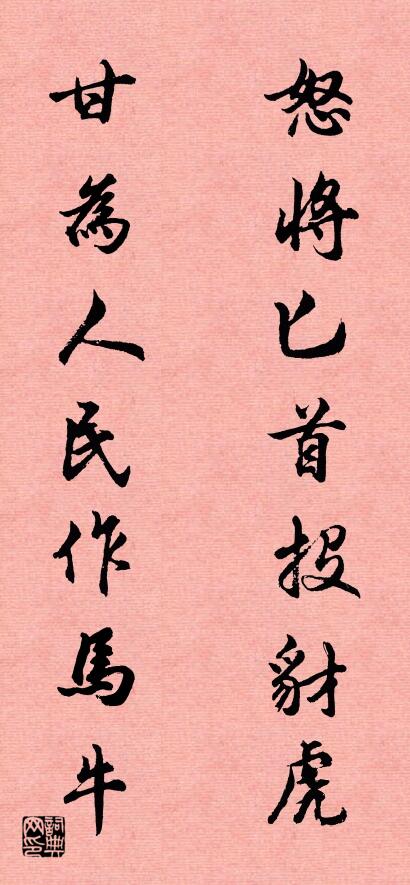 怒將匕首投豺虎
甘為人民作馬牛
詞典网印